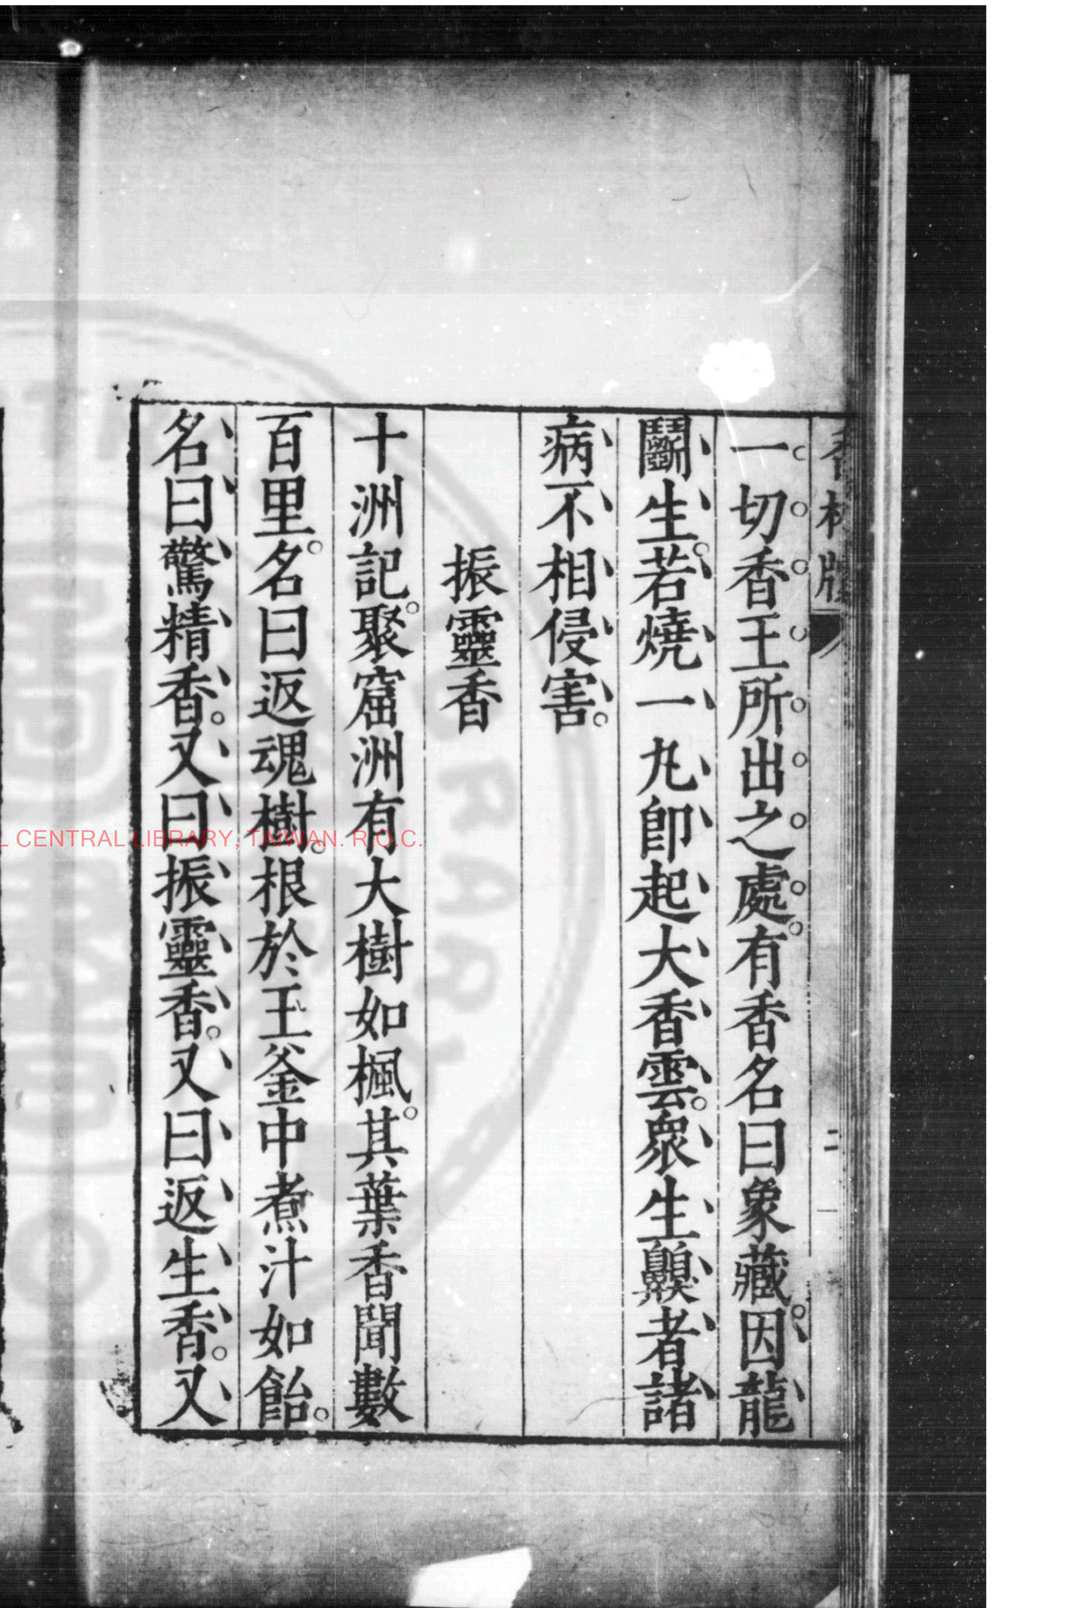 一切香王所出之處。有香名曰象藏。因龍
鬭生。若燒一丸卽起大香雲。衆生齅者諸
病不相侵害。
振靈香
十洲記。聚窟洲有大樹如楓。其葉香聞數
百里。名曰返魂樹。根於玉釜中煮汁如飴。
名曰驚精香。又曰振靈香。又曰返生香。又
CENTRAL LIBRARY, TAIWAN. R.O.C.